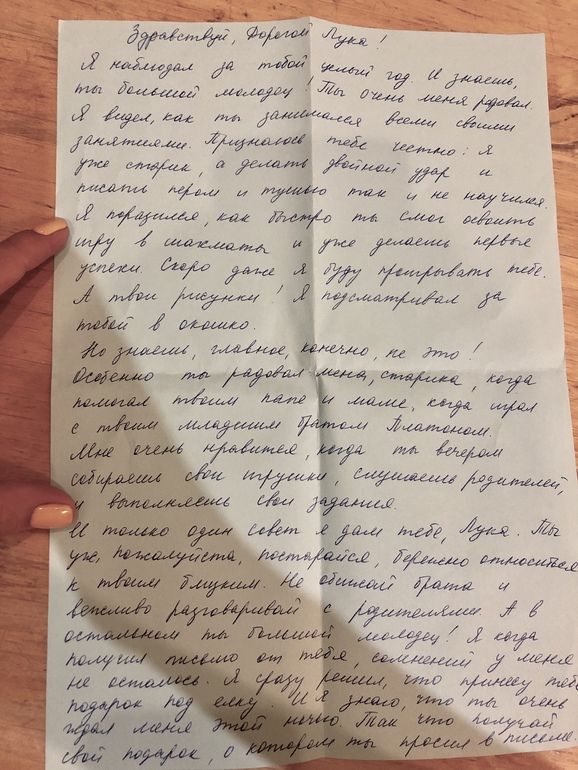 Здравствуй, Дорогой Лука!
Я наблюдал за тобой целый год. И знаешь,
ты большой молодец! Ты очень меня радовал.
Я видел, как ты занимался всеми своими
занятиями. Признаюсь тебе честно: Я
уже старик, а делать двойной удар и
писать пером и тушью так и не научился.
Я поразился, как быстро ты смог освоить
игру в шахматы и уже делаешь первые
успехи. Скоро даже Я буду проигрывать тебе.
А твои рисунки! Я подсматривал за
тобой в окошко.
Но знаешь, главное, конечно, не это!
Особенно ты радовал меня, старика, когда
помогал твоим папе и маме, когда играл
с твоим младшим братом Платоном.
Мне очень нравится, когда ты вечером
собираешь свои игрушки, слушаешь родителей,
и выполняешь свои задания.
И только один совет я дам тебе, Лука. Ты
уж, пожалуйста, постарайся, бережно относиться
к твоим близким. Не обижай брата и
вежливо разговаривай с родителями. А в
остальном ты большой молодец! Я когда
получил письмо от тебя, сомнений у меня
не осталось. Я сразу решил, что принесу тебе
подарок под елку. И Я знаю, что ты очень
ждал меня этой ночью. Так что получай
свой подарок, о котором ты просил в письме.